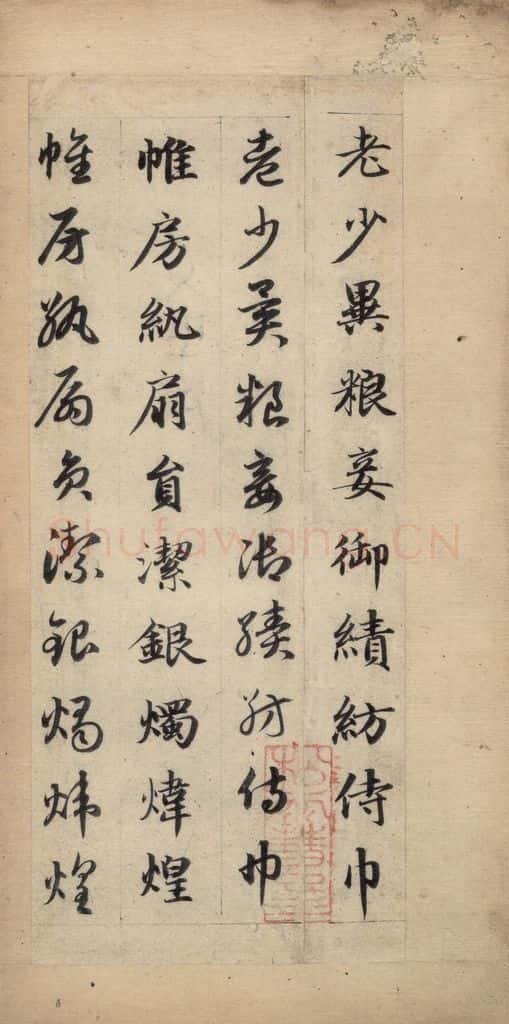 老少異粮妾御績紡侍巾
老少異粮妾御績紡侍巾
帷房紈扇員潔銀燭煒煌
帷房紈扇員潔銀燭煒煌
Shufawang.CN